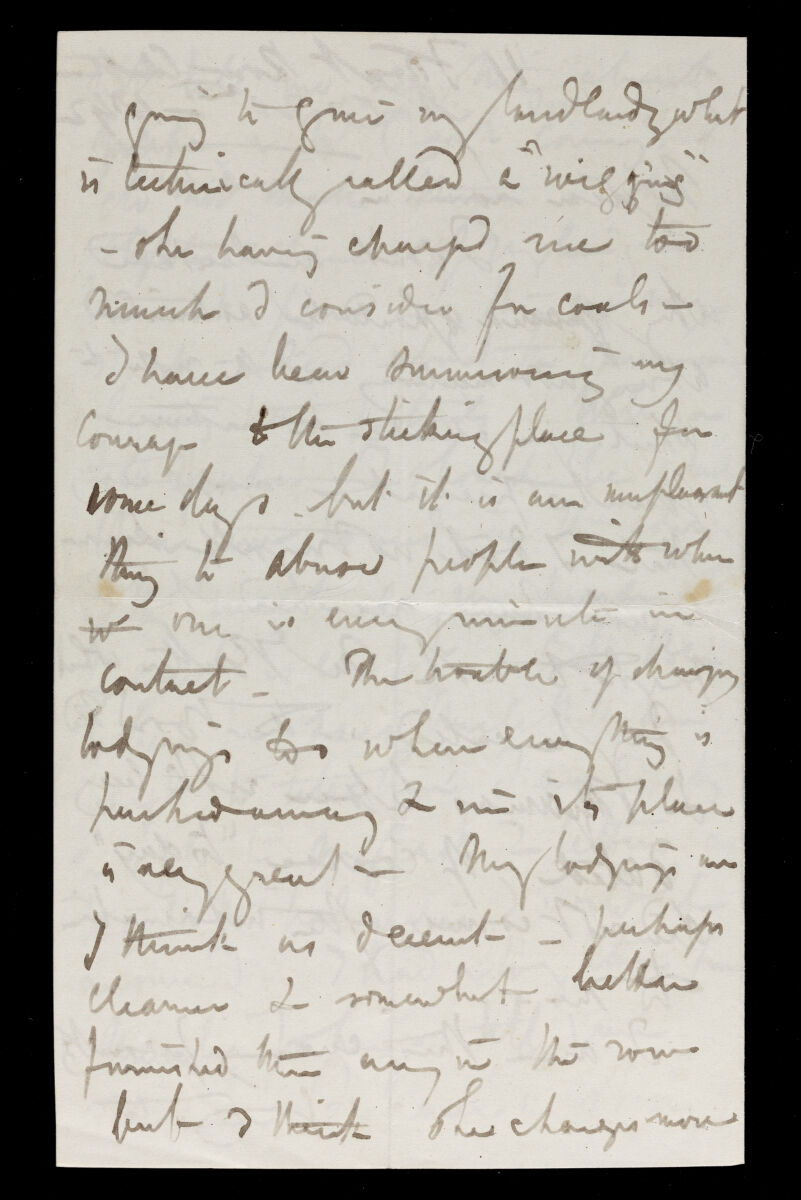 going to give my landlady what
is technically called a "wigging"
- she having charged me too
much I consider for coals -
I have been summoning my
courage to the sticking place for
some days - but it is an unpleasant
thing to abuse people with whom
one is every minute in
contact - The trouble of changing
lodgings too when everything is
packed away & in its place
is very great - My lodgings are
I think as decent - perhaps
cleaner & somewhat better
furnished than any in the row
but I think she charges more